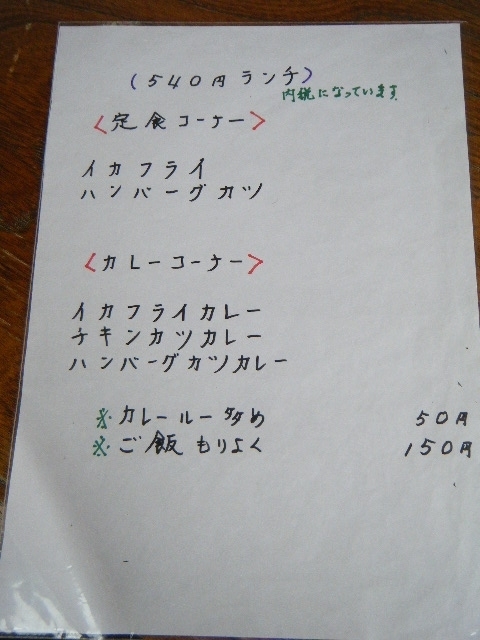 (540円ランチ)
内税になっています
<定食コーナー>
イカフライ
ハンバーグカツ
<カレーコーナー>
イカフライカレー
チキンカツカレー
ハンバーグカツカレー
※カレールー多め 50円
※ご飯もりよく 150円